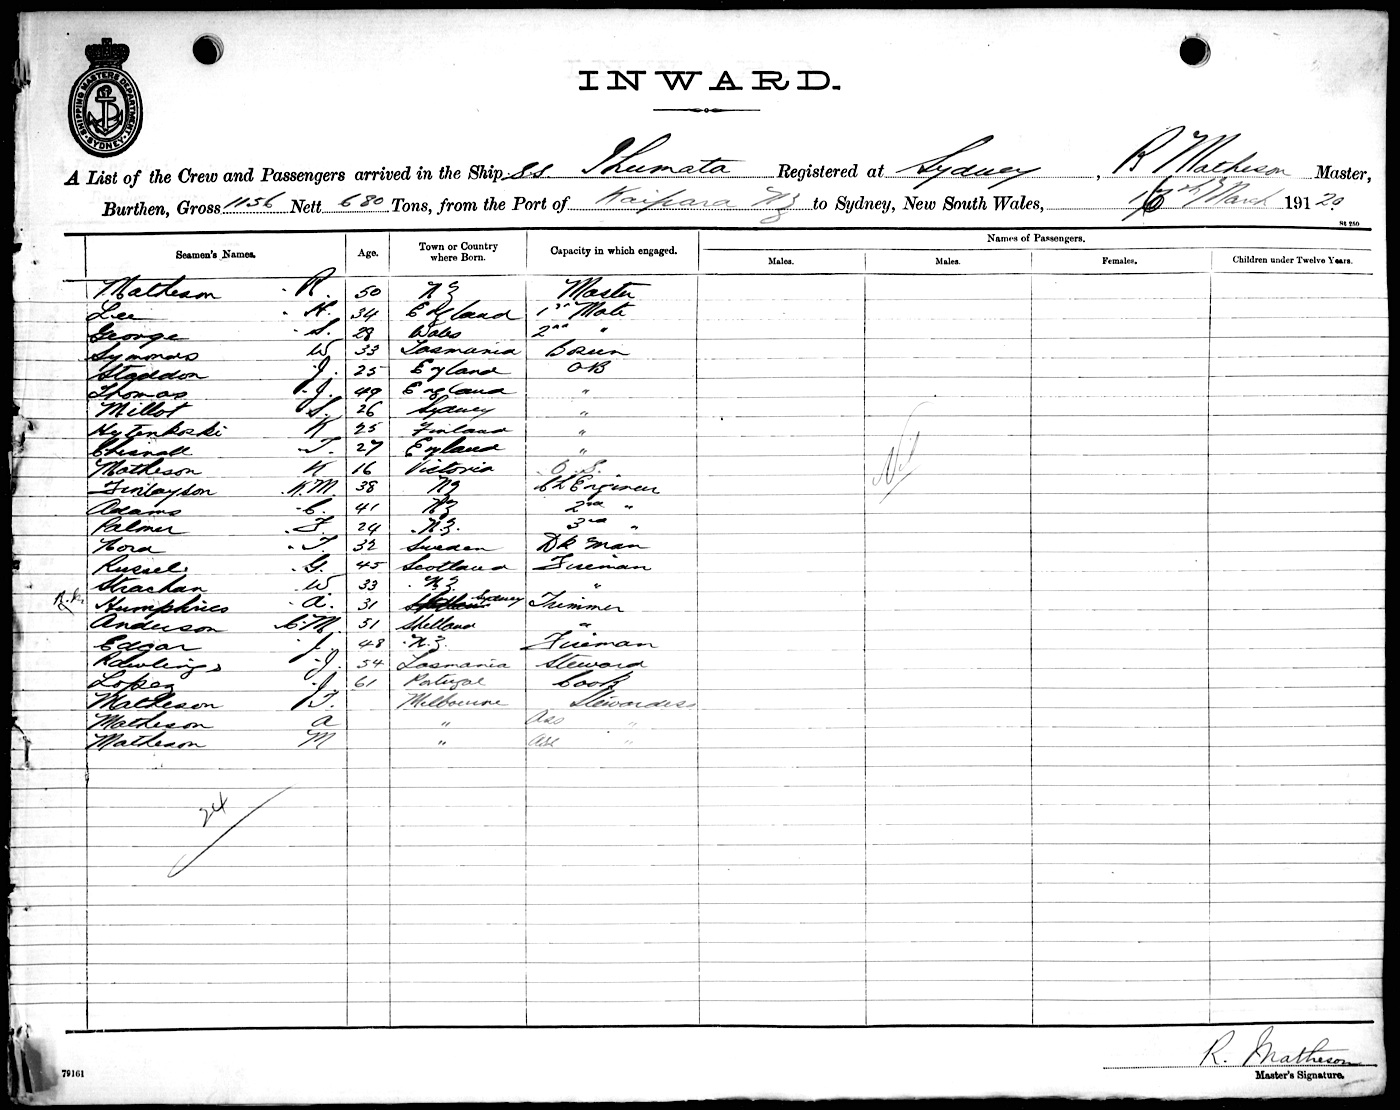 SHIPPING MASTERS DEPARTMENT
SYDNEY
INWARD.
A List of the Crew and Passengers arrived in the Ship S.S. Ihumata Registered at Sydney, R Matheson Master,
Burthen, Gross 1156 Nett 680 Tons, from the Port of Kaipara NZ to Sydney, New South Wales, 16th March 1920
St 250
Seamen's Names. Age. Town or Country where Born. Capacity in which engaged. Names of Passengers.
Males. Males. Females. Children under Twelve Years.
Matheson R. 50 NZ Master
Lee H. 34 England 1st Mate
George S. 28 Wales 2nd "
Symonds W 33 Tasmania Bosun
Staddon J. 25 England AB
Thomas J. 49 England "
Millot S. 26 Sydney "
Hytenkoski K 25 Finland "
Chisnall T. 27 England "
Matheson K 16 Victoria O.S.
Finlayson K.M. 38 NZ Ch Engineer
Adams C. 41 NZ 2nd "
Palmer F. 24 N.Z. 3rd "
Nord T. 32 Sweden Dk Man
Russel G. 45 Scotland Fireman
Strachan W 33 N.Z. "
Humphries A. 31 Sydney Trimmer
Anderson C.M. 51 Shetland "
Edgar J. 48 N.Z. Fireman
Rawlings J. 54 Tasmania Steward
Lopez J. 61 Portugal Cook
Matheson B. Melbourne Stewardess
Matheson A " Ass "
Matheson M " Ass "
Nil
24
R. Matheson
Master's Signature.
79161